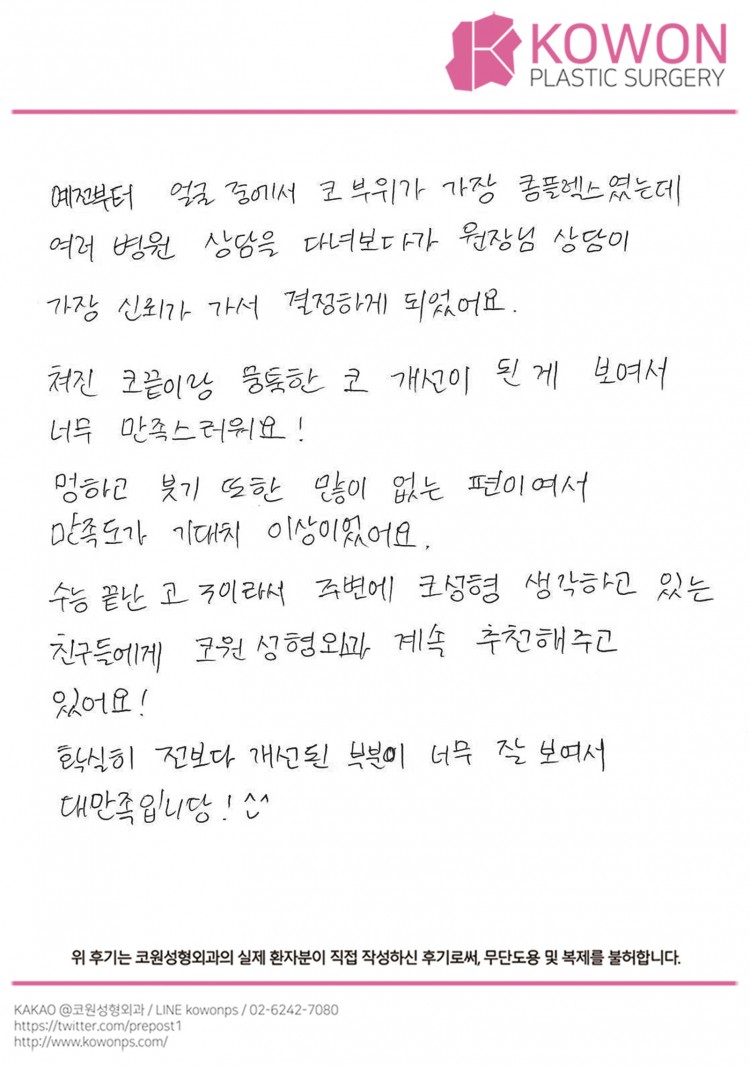 KOWON
PLASTIC SURGERY
예전부터 얼굴 중에서 코 부위가 가장 콤플렉스였는데
여러 병원 상담을 다녀보다가 원장님 상담이
가장 신뢰가 가서 결정하게 되었어요.
쳐진 코끝이랑 뭉툭한 코 개선이 된 게 보여서
너무 만족스러워요!
멍하고 붓기 또한 많이 없는 편이여서
만족도가 기대치 이상이었어요.
수능 끝난 고3이라서 주변에 코성형 생각하고 있는
친구들에게 코원 성형외과 계속 추천해주고
있어요!
확실히 전보다 개선된 부분이 너무 잘 보여서
대만족입니당! ^^
위 후기는 코원성형외과의 실제 환자분이 직접 작성하신 후기로써, 무단도용 및 복제를 불허합니다.
KAKAO @코원성형외과 / LINE kowonps / 02-6242-7080
https://twitter.com/prepost1
http://www.kowonps.com/